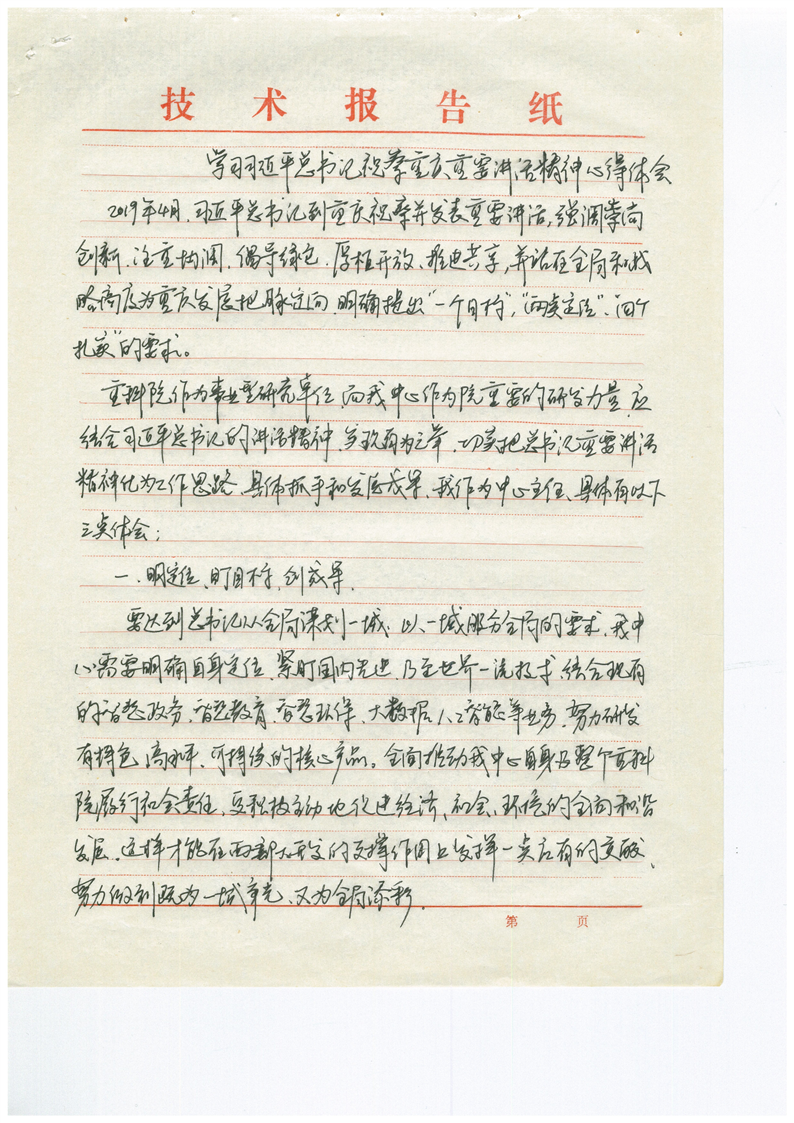 技术报告纸
学习习近平总书记视察重庆重要讲话精神心得体会
2019年4月,习近平总书记到重庆视察并发表重要讲话,强调崇尚
创新、注重协调、倡导绿色、厚植开放、推进共享,并站在全局和战
略高度为重庆发展把脉定向,明确提出"一个目标","两点定位"、"四个
扎实"的要求。
重科院作为事业型研究单位,而我中心作为院重要的研发力量,应
结合习近平总书记的讲话精神,,切实把总书记重要讲话
精神化为工作思路、具体抓手和发展成果,我作为中心主任,具体有以下
三点体会:
一、明定位、盯目标、创成果.
要达到总书记从全局谋划一域、以一域服务全局的要求,我中
心需要明确自身定位,紧盯国内先进、乃至世界一流技术,结合现有
的智慧政务、智慧教育、智慧环保、大数据人工智能等业务,努力研发
有特色、高水平、可持续的核心产品。全面推动我中心自身及整个重科
院履行社会责任,要积极主动地促进经济、社会、环境的全面和谐
发展,这样才能在西部大开发的支撑作用上发挥一点应有的贡献、
努力做到既为一域争光、又为全局添彩.
第 页